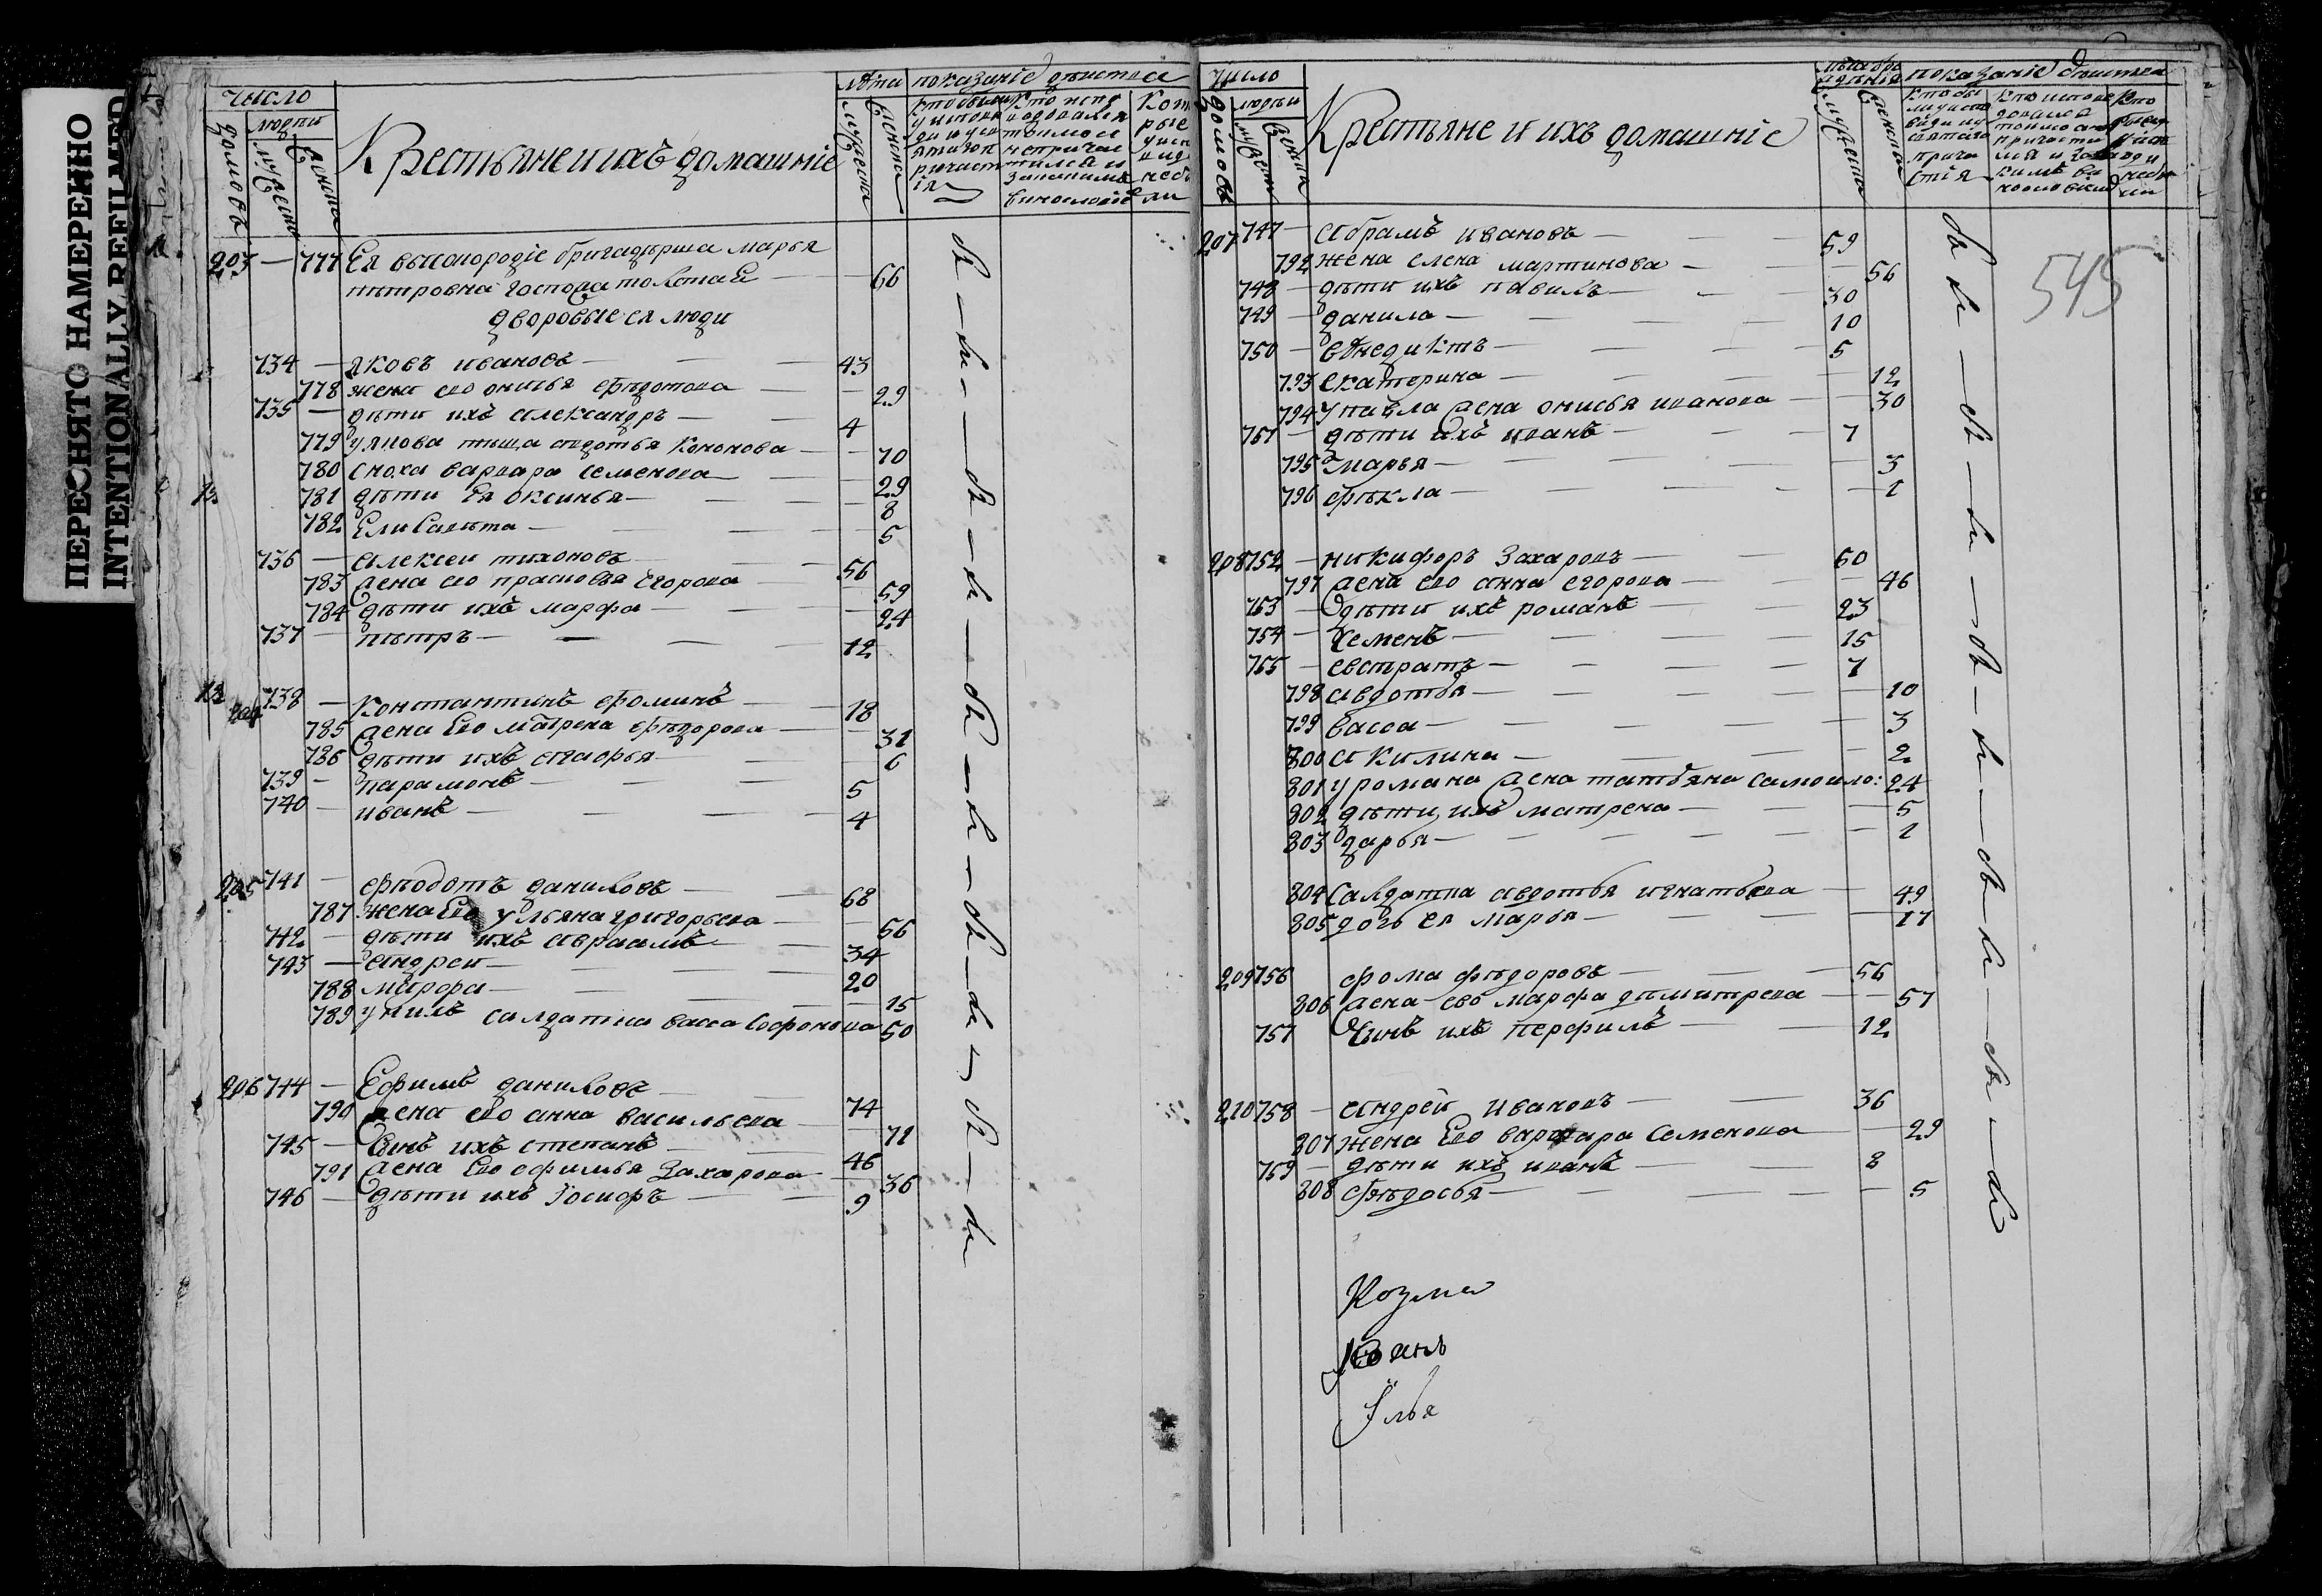 ПЕРЕСНЯТО НАМЕРЕННО
INTENTIONALLY REFILMED
число
людеи
домовъ
мужеска
женска
Крестьяне и ихъ домашніе
лѣта
мужеска
женска
показаніе действа
203 — 777 Ея высокородіе бригадѣрша марья
пѣтровна госпожа толстая — 66
дворовые ея люди
734 — яковъ ивановъ — 43
778 жена его онисья фѣдотова — 29
735 — дѣти ихъ александръ — 4
779 у якова тѣща авдотья кононова — 70
780 сноха варвара семенова — 29
781 дѣти ея оксинья — 8
782 Елисавѣта — 5
736 — алексеи тихоновъ — 56
783 жена его прасковья егорова — 59
784 дѣти ихъ марфа — 24
737 — пѣтръ — 12
204 738 — константинъ фоминъ — 18
785 жена Его матрена фѣдорова — 31
786 дѣти ихъ агафья — 6
739 — парамонъ — 5
740 — иванъ — 4
205 741 — фѣодотъ даниловъ — 68
787 жена Его ульяна григорьева — 56
742 — дѣти ихъ авраамъ — 34
743 — андреи — 20
788 марфа — 15
789 у нихъ салдатка васса софонова 50
206 744 — Ефимъ даниловъ — 74
790 жена его анна васильева — 71
745 — сынъ ихъ степанъ — 46
791 жена Его офимья Захарова — 36
746 — дѣти ихъ Іосифъ — 9
число
домовъ
людеи
мужеска
женска
Крестьяне и ихъ домашніе
мужеска
женска
показаніе действа
545
207 747 — абрамъ ивановъ — 59
792 жена елена мартинова — 56
748 — дѣти ихъ павилъ — 30
749 — данила — 10
750 — Венедиктъ — 5
793 екатерина — 12
794 у павла жена онисья иванова — 30
751 — дѣти ихъ иванъ — 7
795 марья — 3
796 фѣкла — 1
208 752 — никифоръ Захаровъ — 50
797 жена его анна егорова — 46
753 — дѣти ихъ романъ — 23
754 — семенъ — 15
755 — евстратъ — 7
798 авдотья — 10
799 васса — 3
800 акилина — 2
801 у романа жена татьяна самоило: 24
802 дѣти ихъ матрена — 5
803 дарья — 1
804 салдатка авдотья игнатьева — 49
805 дочь ея марья — 17
209 756 фома фѣдоровъ — 56
806 жена его марфа дмитрева — 57
757 сынъ ихъ перфилъ — 12
210 758 — андреи Ивановъ — 36
807 жена Его варвара Семенова — 29
759 — дѣти ихъ иванъ — 8
808 фѣдосья — 5
Козма
Иванъ
Илья